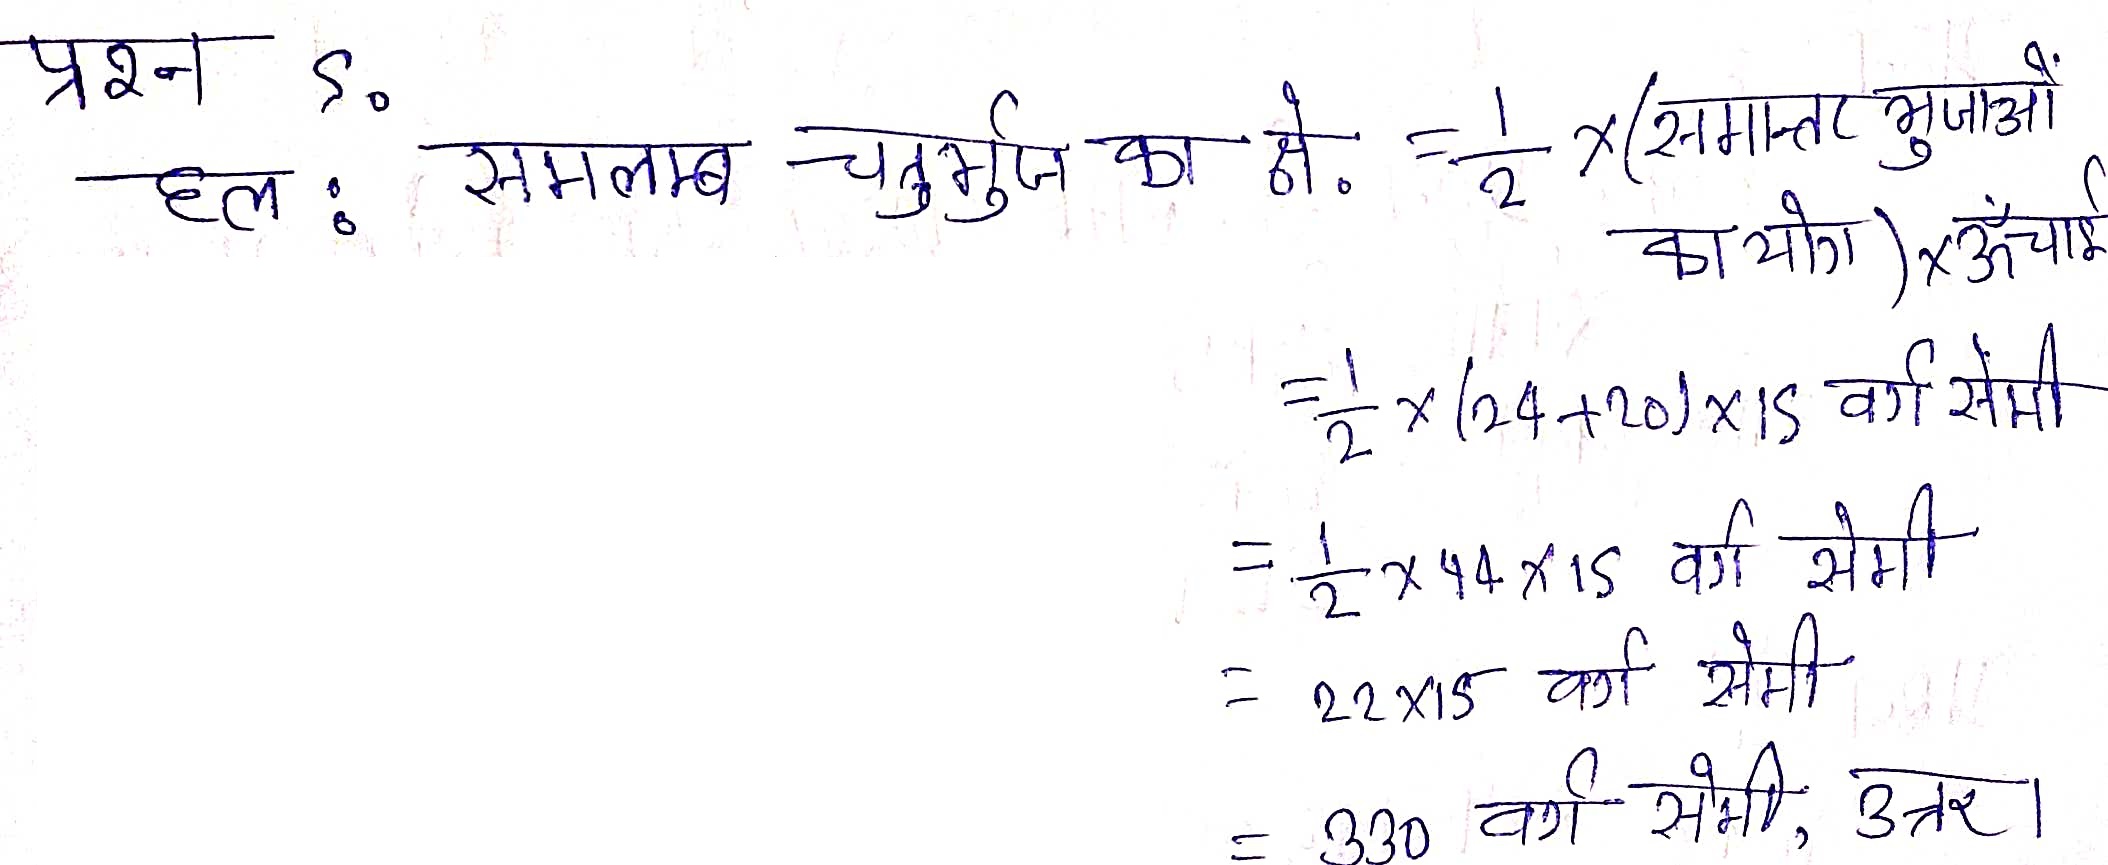 प्रश्न 5.
हल : समलम्ब चतुर्भुज का क्षे. = 1/2 × (समान्तर भुजाओं
का योग) × ऊँचाई
= 1/2 × (24 + 20) × 15 वर्ग सेमी
= 1/2 × 44 × 15 वर्ग सेमी
= 22 × 15 वर्ग सेमी
= 330 वर्ग सेमी, उत्तर।